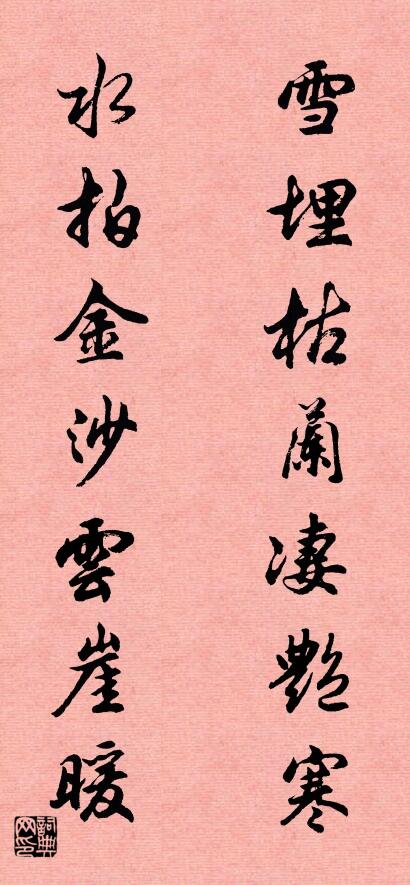 雪埋枯蘭凄艷寒
水拍金沙雲崖暖
詞典網印